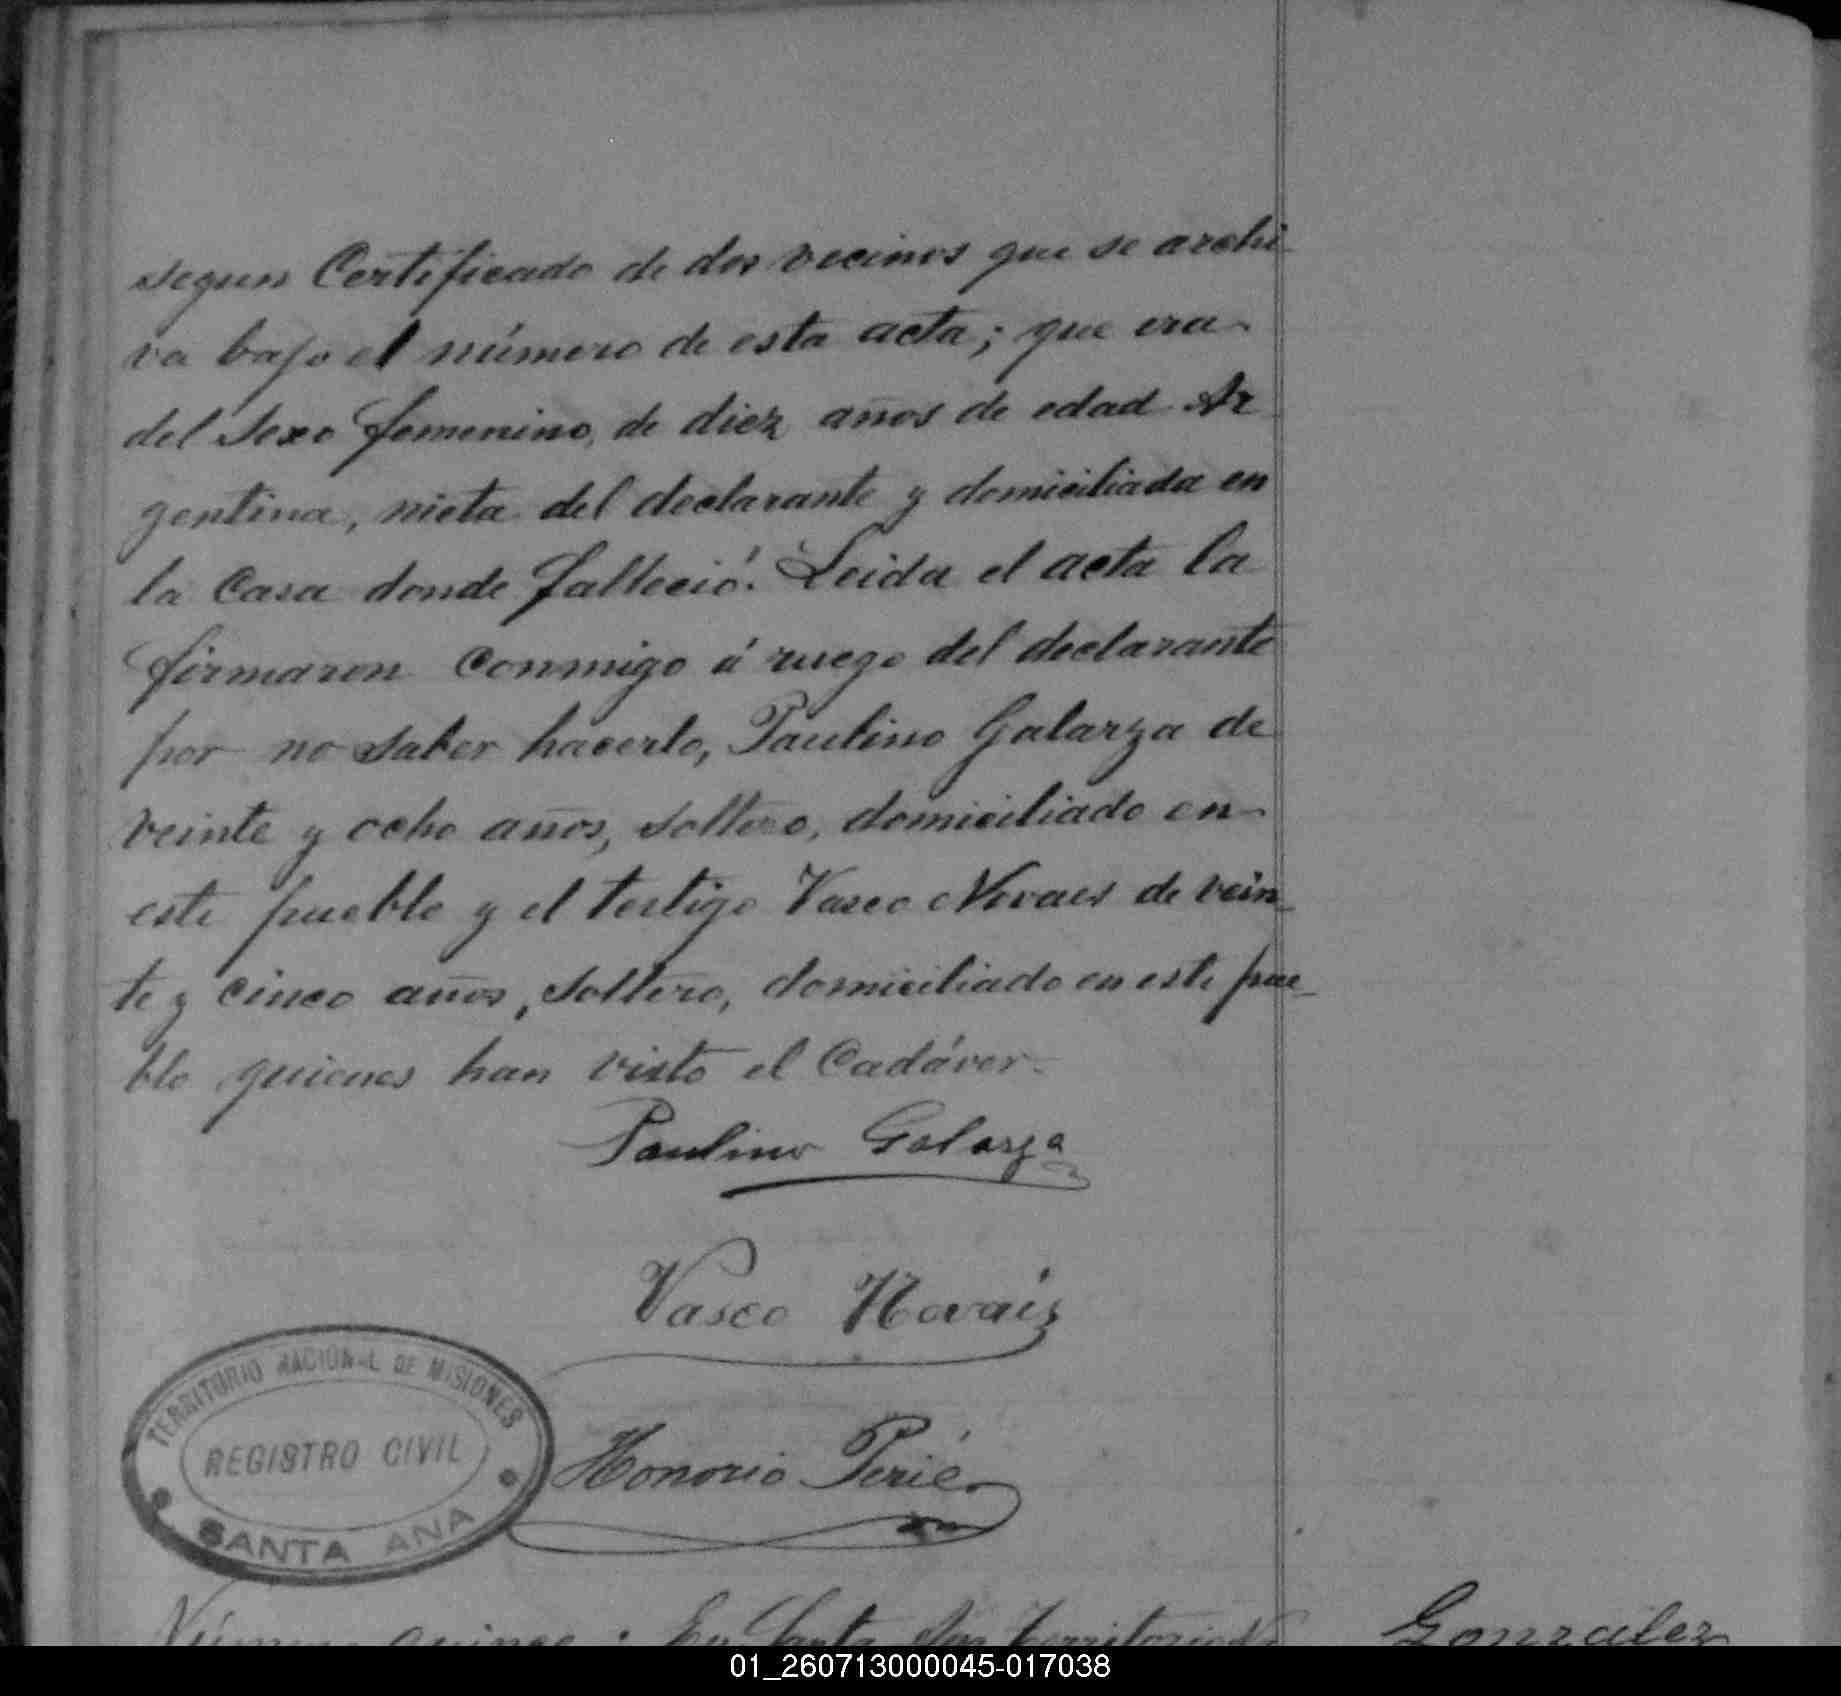 segun Certificado de dos vecinos que se archi-
va bajo el número de esta acta; que era
del Sexo femenino, de diez años de edad Ar
gentina, nieta del declarante y domiciliada en
la Casa donde falleció. Leida el acta la
firmaron conmigo á ruego del declarante
por no saber hacerlo, Paulino Galarza de
veinte y ocho años, soltero, domiciliado en
este pueblo y el testigo Vasco Novaes de vein-
te y cinco años, soltero, domiciliado en este pue-
blo quienes han visto el Cadáver.
Paulino Galarza
Vasco Nováis
TERRITORIO NACIONAL DE MISIONES
REGISTRO CIVIL
SANTA ANA
Honorio Perié
Número quince. En Santa Ana Territorio
González
01_260713000045-017038